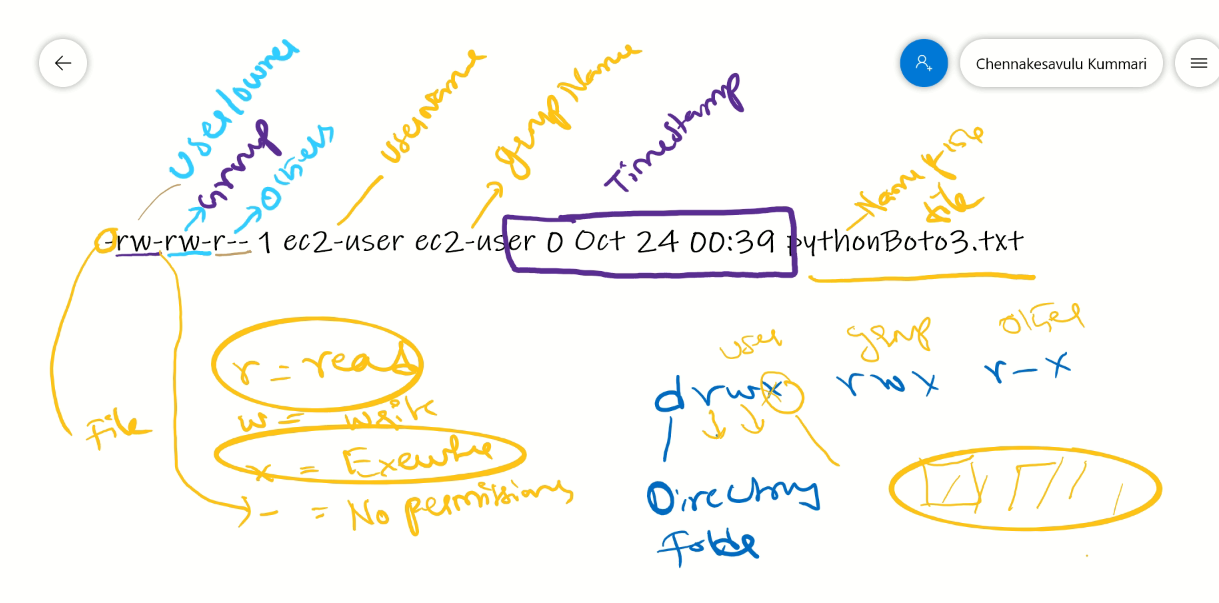 Chennakesavulu Kummari
User/owner
Group
Others
Username
group Name
Timestamp
Name of the
file
-rw-rw-r-- 1 ec2-user ec2-user 0 Oct 24 00:39 pythonBoto3.txt
r = read
w = write
x = Execute
- = No permissions
File
user group other
drwx rwx r-x
Directory
Folder